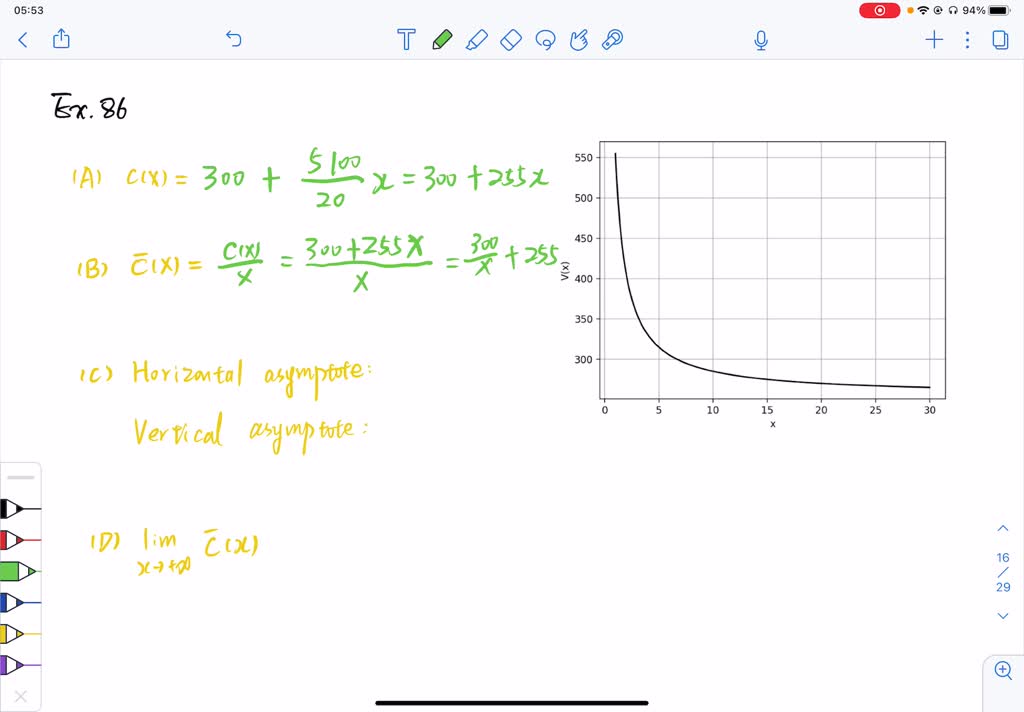 05:53
94%
Ex. 86
(A) C(X) = 300 + 5100/20 x = 300 + 255x
(B) C̄(X) = C(X)/X = 300+255X/X = 300/X + 255
(C) Horizontal asymptote:
Vertical asymptote:
(D) lim x→+∞ C̄(x)
550
500
450
400
350
300
V(x)
0 5 10 15 20 25 30
x
16
/
29